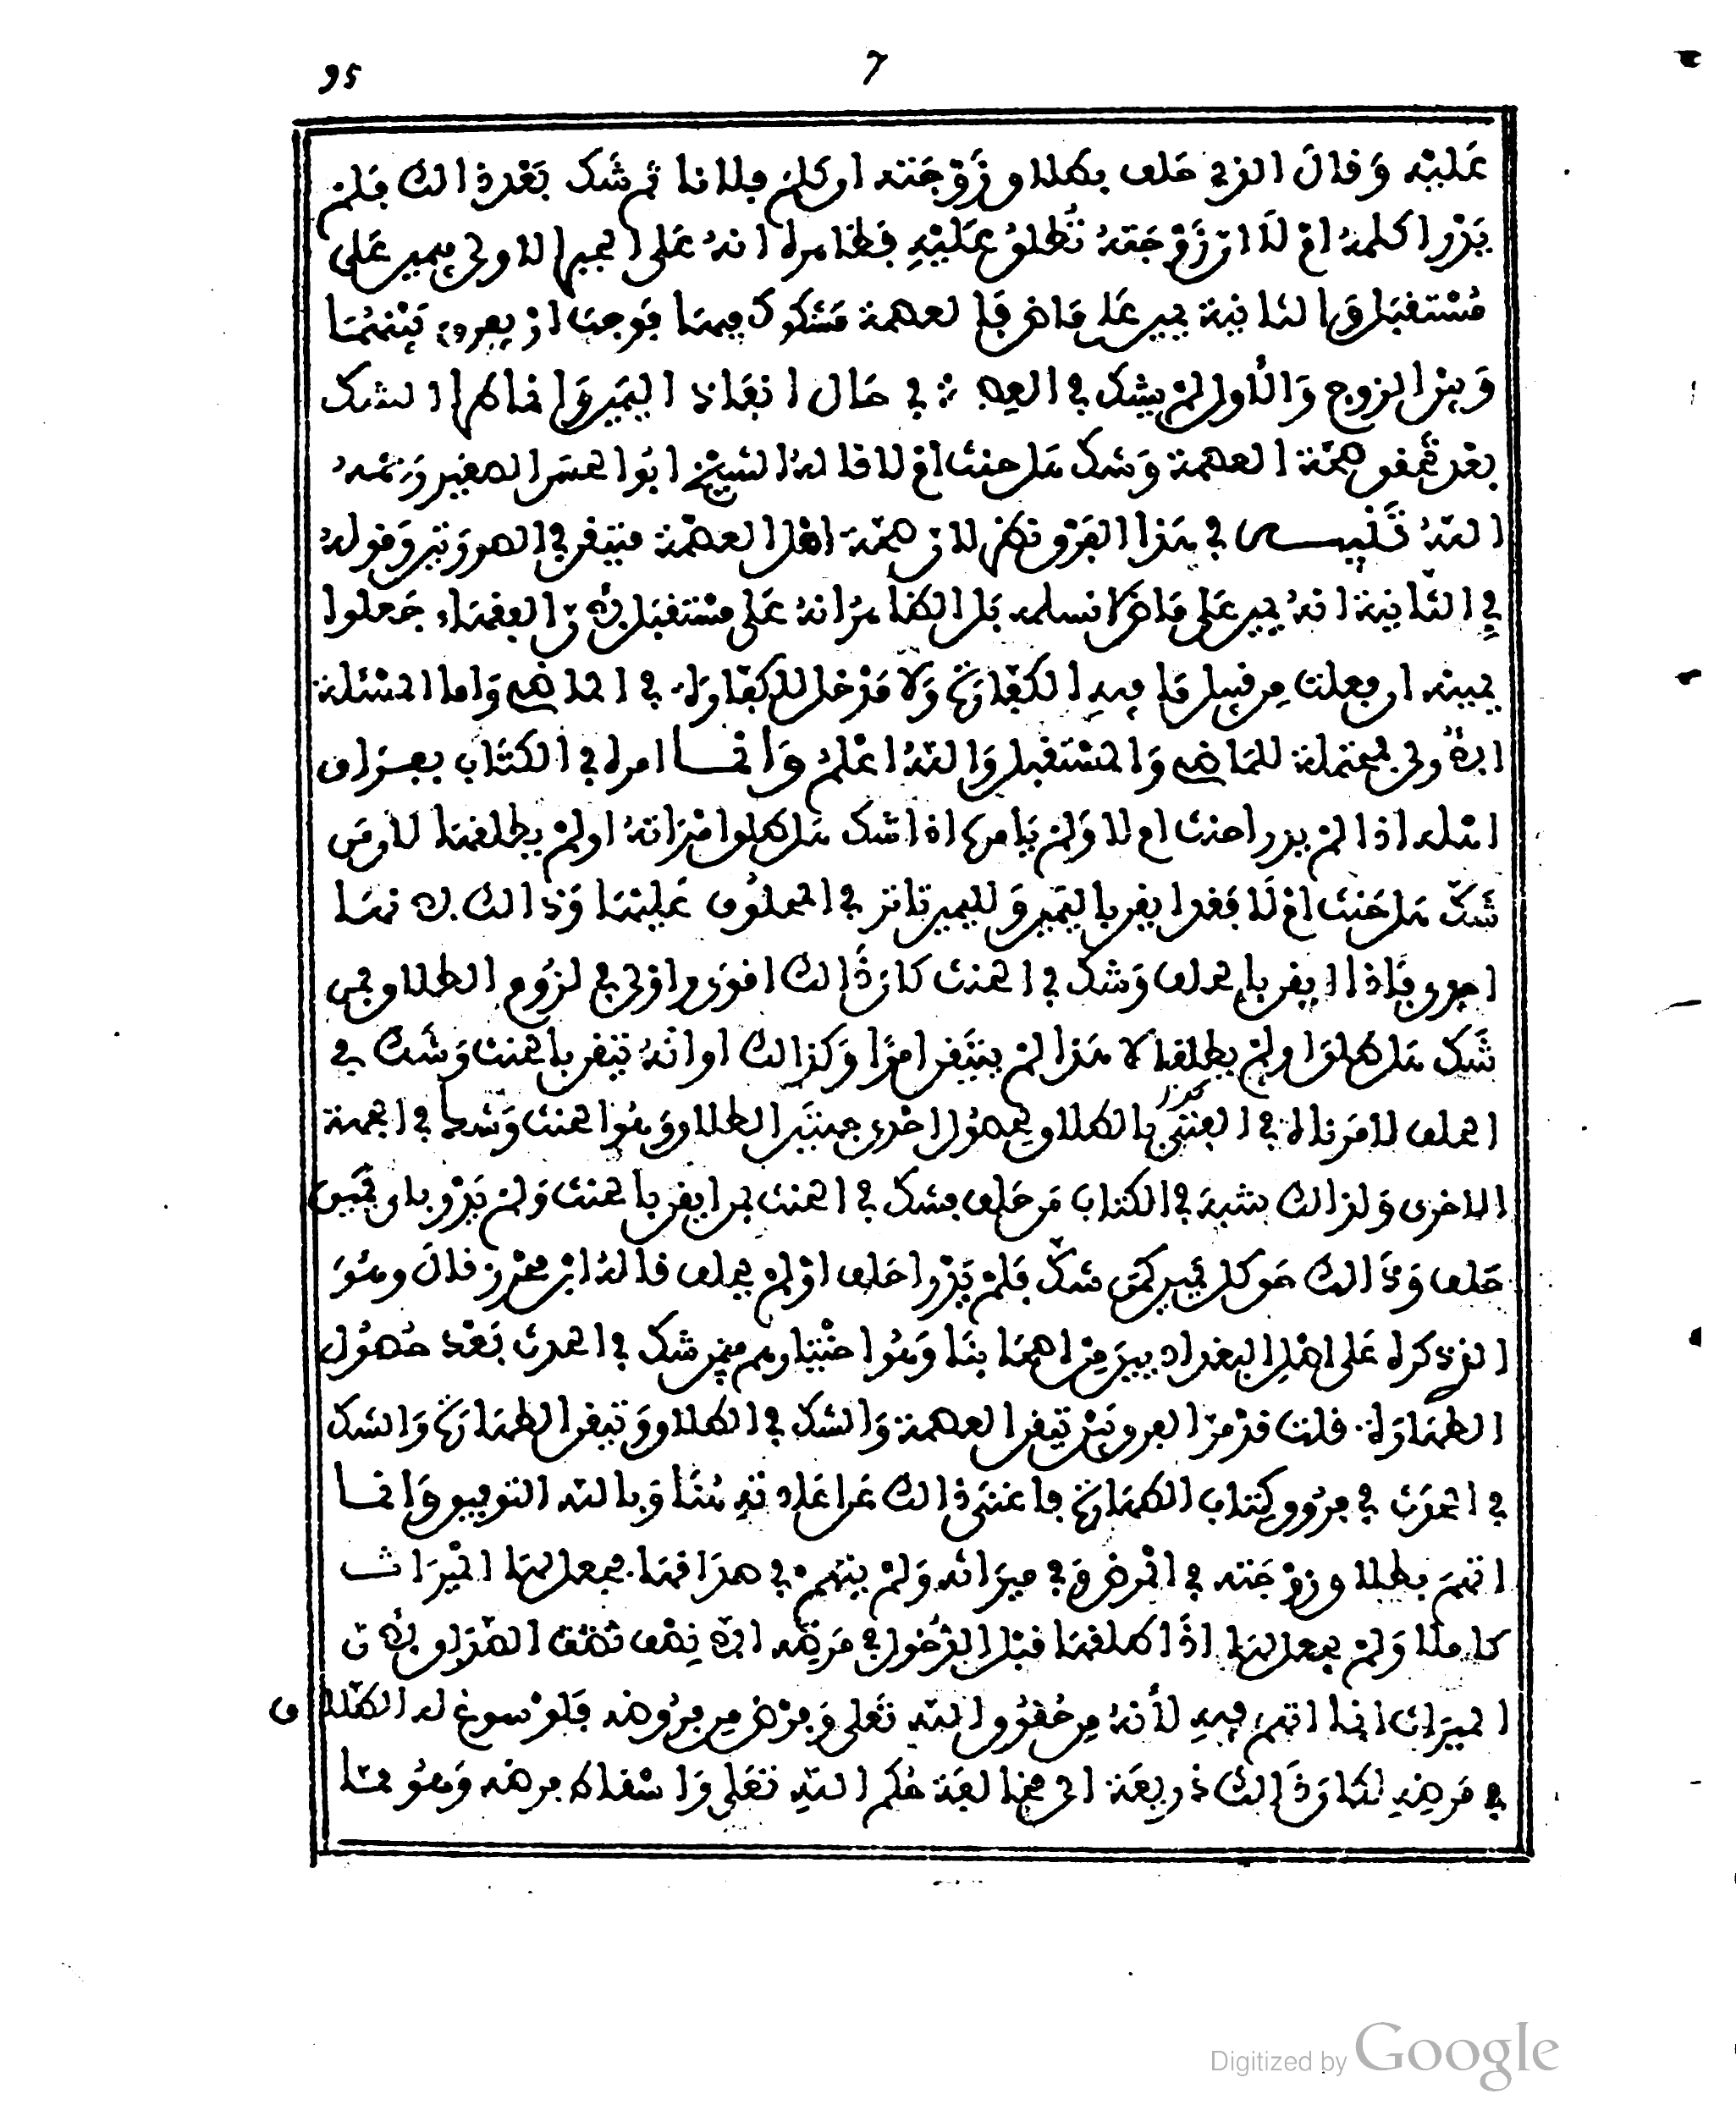 95 7
عَليْه وَقالَ الذي حَلف بطلاق زَوْجَته ان كلم فلانا ثم شَك بَعْد ذالك فلم
يَدْر اكلمهُ امْ لَا ان زَوْجَتهُ تُطلقُ عَليْهِ فظاهره انهُ عَلى الحنث الاولى يمين عَلى
مُسْتقبل وَالثانية يمين عَلى مَاض فَالعصمة مَشكوك فيهَا فوجب ان يفرق بَيْنهُمَا
وَبين الزوج وَالْاول لمْ يشك في العصمة في حَال انعقاد اليَمين وَانما طرا الشك
بعْد تحَقق صحّة العصمة وَشك هَل حنث امْ لا قالهُ الشيْخ ابُوا الحسَن الصغير رَحمهُ
اللّهُ قلت في هَذا الفَرْق نظر لان صحّة اصْل العصْمة متيقن في الصورَتين وَقولهُ
في الثانية انهُ يمين عَلى مَاض لا نسلمه بَل الظاهرُ انهُ عَلى مسْتقبل لأن الفقهَاء جَعلوا
يمينه ان فعلت مِن قبيل مَا فيهِ الكفّارَة وَلا مَدْخل للكفّارَة في الماضي وَاما المسْئلة
الأولى محتملة للمَاضي وَالمسْتقبل وَاللّهُ اعْلمُ وَانما امره في الكتَاب بفرَاق
امثله اذا لمْ يدر احنث ام لا وَلمْ يَامرها اذا شك هَل طلق امْرَاتهُ او لمْ يطلقهَا لان مَن
شَكّ هَل حَنث امْ لَا فقد ايقن باليَمين وَلليمين تاثير في المحلوُف عَليْهَا وَذالك لانهَا
احد فاذا ايقن بالحلف وَشك في الحنث كان ذَالك اقوَى وَاوْلى في لزُوم الطلاق ممن
شَك هَل طلق او لمْ يطلق لا هَذا لمْ يتيَقن امرًا وَكذالك لو انهُ تيقن بالحنث وَشك في
الحلف لامَرناه في العتق كذا بالطلاق لحصُول احْدى جنبَتَي الطلاق وَهُوا الحنث وَشك في الجهة
الاخرى وَلذالك شبهَ في الكتاب مَن حَلف فشك في الحنث بمن ايقن بالحنث وَلمْ يَدْر باي يمَين
حَلف وَذَالك خوَ كل يمين كمَن شكّ فلمْ يَدْر احَلف اوْ لمْ يحلف قالهُ ابْن محْرز قالَ وهُوَ
الذي ذكره عَلى اهْل البغداد ييِنَ مِن اصحَابنَا وَهُوا اختيارهم فيمن شك في الحدث بَعْد حُصُول
الطهَارَة. قلت قدْ مرّ الفرق بَيْن تيقن العصمة وَالشك في الطلاق وَتيقن الطهَارَة وَالشك
في الحَدَث في فرُوق كِتاب الطهَارَة فاغنى ذالك عَن اعَادته هُنَا وَباللّه التوفيق وَانما
اتهمَ بطلاق زوْجَته في المرَض وَفي ميرَاثه وَلمْ يتهم في صدَاقهَا فجعل لهَا الميْرَاث
كاملا وَلمْ يجعل لهَا اذَا طلقهَا قبْل الدُّخول في مَرضه الّا نِصْف الصّدَاق لأن
الميرَاث انما اتهم فيهِ لأنهُ مِن حُقوُق اللّه تَعَلى وَفرْض مِن فرُوضه فلوْ سوغ له الطّلاق
في مَرضهِ لكان ذَالك ذريعَة الى مخالفَة حُكم اللّهِ تعَلى وَاسْقاط فرضه وَهُو ممّا
Digitized by Google